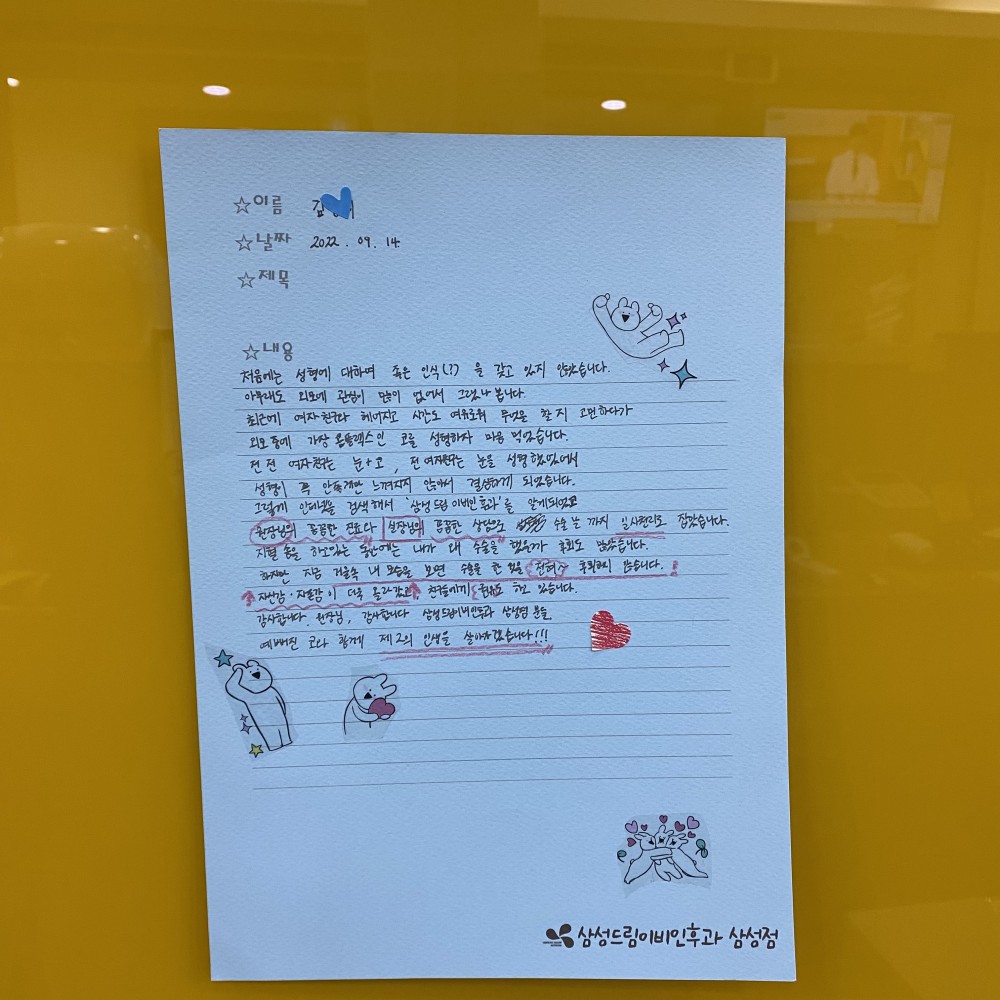 ☆이름 김
☆날짜 2022. 09. 14.
☆제목
☆내용
처음에는 성형에 대하여 좋은 인식(?)을 갖고 있지 않았습니다.
아무래도 외모에 관심이 많이 없어서 그랬나 봅니다.
최근에 여자친구와 헤어지고 시간도 여유로워 무엇을 할지 고민하다가
외모중에 가장 콤플렉스인 코를 성형하자 마음 먹었습니다.
전전 여자친구는 눈+코, 전 여자친구는 눈을 성형했었어서
성형이 꼭 안좋게만 느껴지지 않아서 결심하게 되었습니다.
그렇게 인터넷을 검색해서 '삼성드림이비인후과'를 알게되었고
원장님의 꼼꼼한 진료와 실장님의 꼼꼼한 상담으로 수술 날까지 일사천리로 잡았습니다.
지혈 솜을 하고있는 동안에는 내가 왜 수술을 했을까 후회도 많았습니다.
하지만 지금 거울속 내 모습을 보면 수술을 한 것을 전혀 후회하지 않습니다.!
자신감·자존감이 더욱 올라갔고, 친구들에게 하고 있습니다.
감사합니다. 원장님, 감사합니다 삼성드림이비인후과 삼성점 분들
예뻐진 코와 함께 제2의 인생을 살아가겠습니다!!!
삼성드림이비인후과 삼성점